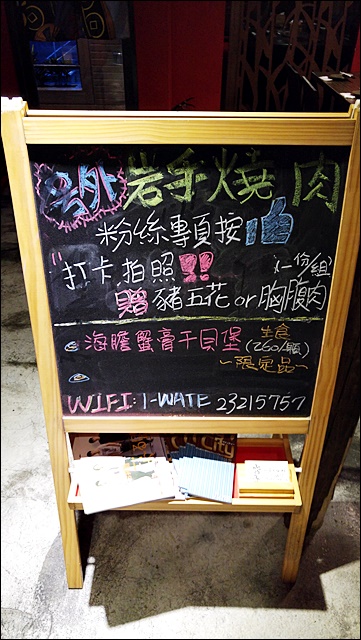 岩手燒肉
粉絲專頁按
打卡拍照!! (一份/組)
贈豬五花or胸腹肉
海膽蟹膏干貝堡 生食
(260/顆)
~限定品~
WIFI: I-WATE 23215757